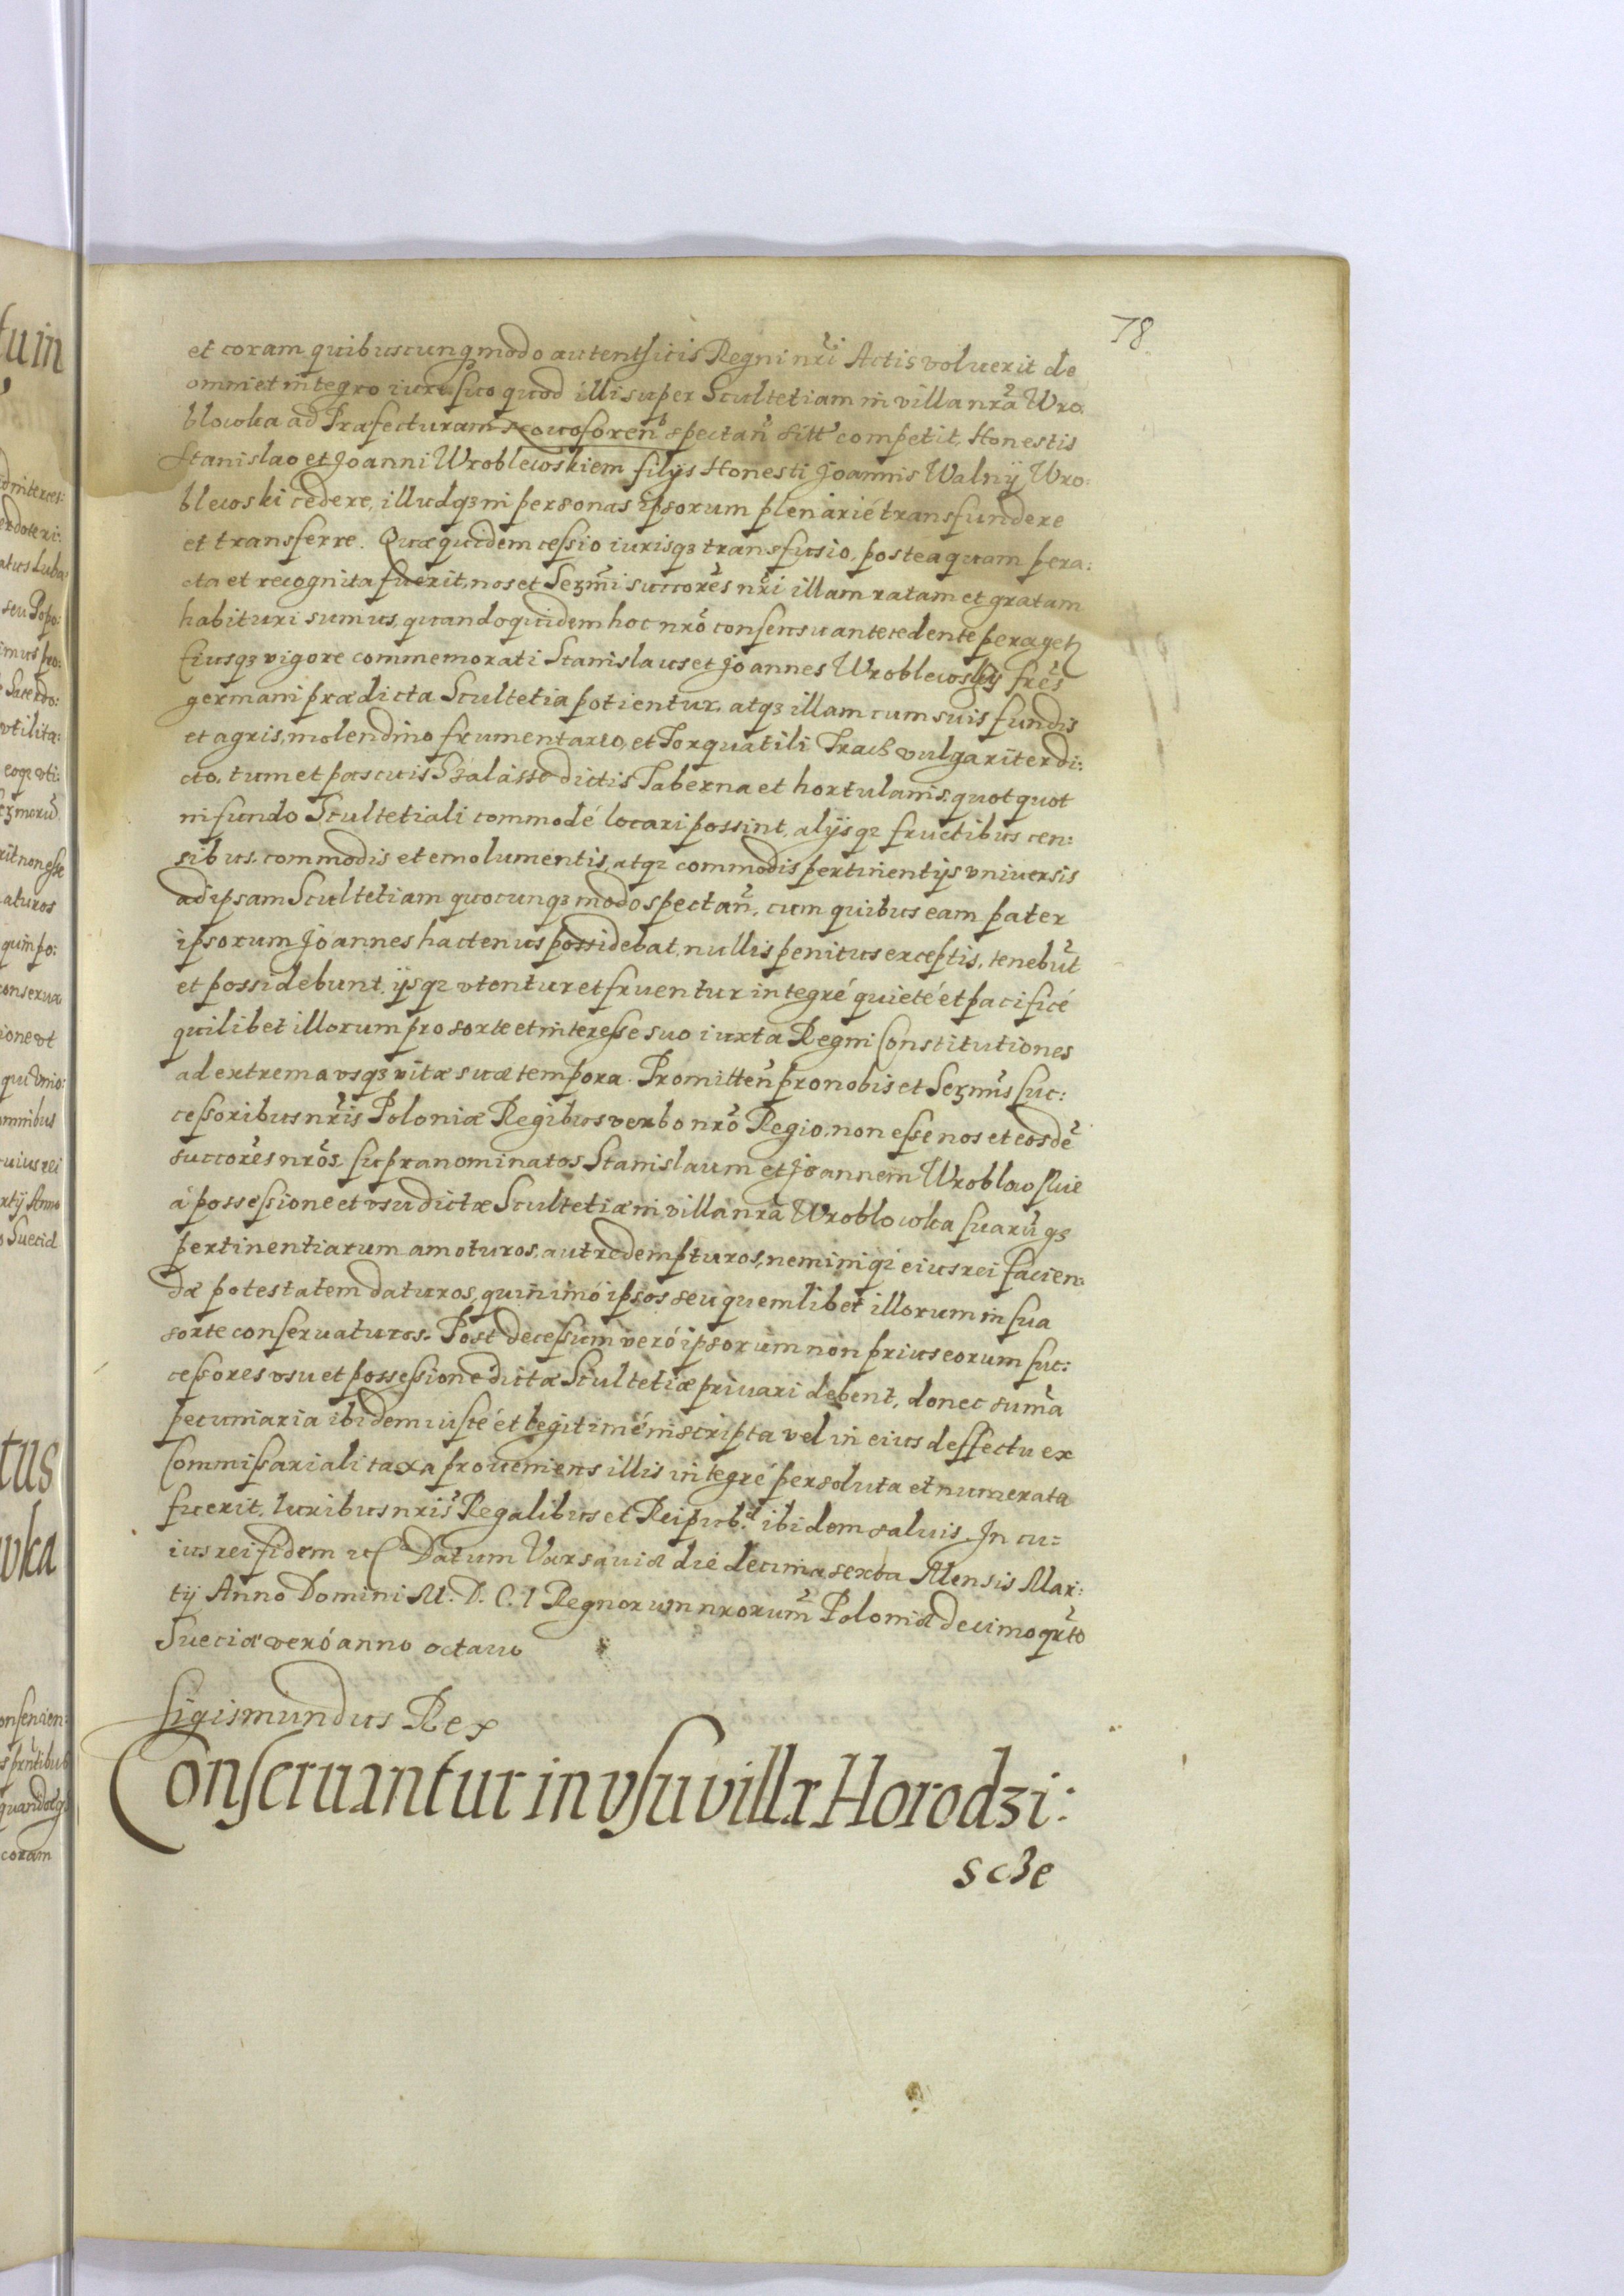 78
et coram quibuscunq modo autentsitis Regni nr̃i Actis voluerit de
omni et integro iure suo quod illi super Scultetiam in villa nr̃a Wro
blowka ad Præfecturam Nowosoren spectan̄ sitt competit, Honestis
Stanislao et Joanni Wroblewskiem filÿs Honesti Joannis Walnÿ Wro:
blewski cedere, illudqꝫ in personas ipsorum plenarié transfundere
et transferre. Quæ quidem cessio iurisqꝫ transfusio, posteaquam pera:
cta et recognita fuerit, nos et Seꝫm̃i succores̃ nr̃i illam ratam et gratam
habituri sumus, quandoquidem hoc nrõ consensu antecedente perageƫ
Eiusqꝫ vigore commemorati Stanislaus et Joannes Wroblewskÿ frẽs
germani prædicta Scultetia potientur, atqꝫ illam cum suis fundis
et agris, molendino frumentario, et Torquatili Trach vulgariter di:
cto, tum et pascuis Szalasse dictis Taberna et hortulanis, quotquot
in fundo Scultetiali commodé locari possint, alÿsqꝫ fructibus cen:
sibus, commodis et emolumentis, atqꝫ commodis pertinentÿs vniuersis
ad ipsam Scultetiam quocunqꝫ modo spectan̄, cum quibus eam pater
ipsorum Joannes hactenus possidebat, nullis penitus exceptis, tenebũt
et possidebunt, ÿsqꝫ vtentur et fruentur integré quieté et pacificé
quilibet illorum pro sorte et interesse suo iuxta Regni Constitutiones
ad extrema vsqꝫ vitæ suæ tempora. Promitten̄ pro nobis et Seꝫmis̃ suc:
cessoribus nr̃is Poloniæ Regibus verbo nrõ Regio, non esse nos et eosdẽ
succores̃ nrõs supranominatos Stanislaum et Joannem Wroblowskie
á possessione et vsu dictæ Scultetiæ in villa nr̃a Wroblowka suarũqꝫ
pertinentiarum amoturos, aut redempturos, neminiqꝫ eius rei facien:
dæ potestatem daturos, quinimó ipsos seu quemlibet illorum in sua
sorte conseruaturos. Post decessum veró ipsorum non prius eorum suc:
cessores vsu et possessione dictæ Scultetiæ priuari debent, donec sum̃a
pecuniaria ibidem iusté et legitimé inscripta vel in eius deffectu ex
Commissariali taxa proueniens illis integré persoluta et numerata
fuerit, Iuribus nris̃ Regalibus et Reipub. ibidem saluis. In cu=
ius rei fidem etc Datum Varsauiæ die decima sexta Mensis Mar:
tÿ Anno Domini M. D. C. I Regnorum nrorum̃ Poloniæ decimo qr̃to
Sueciæ veró anno octauo
Sigismundus Rex
Conseruantur in vsu villæ Horodzi:
scze